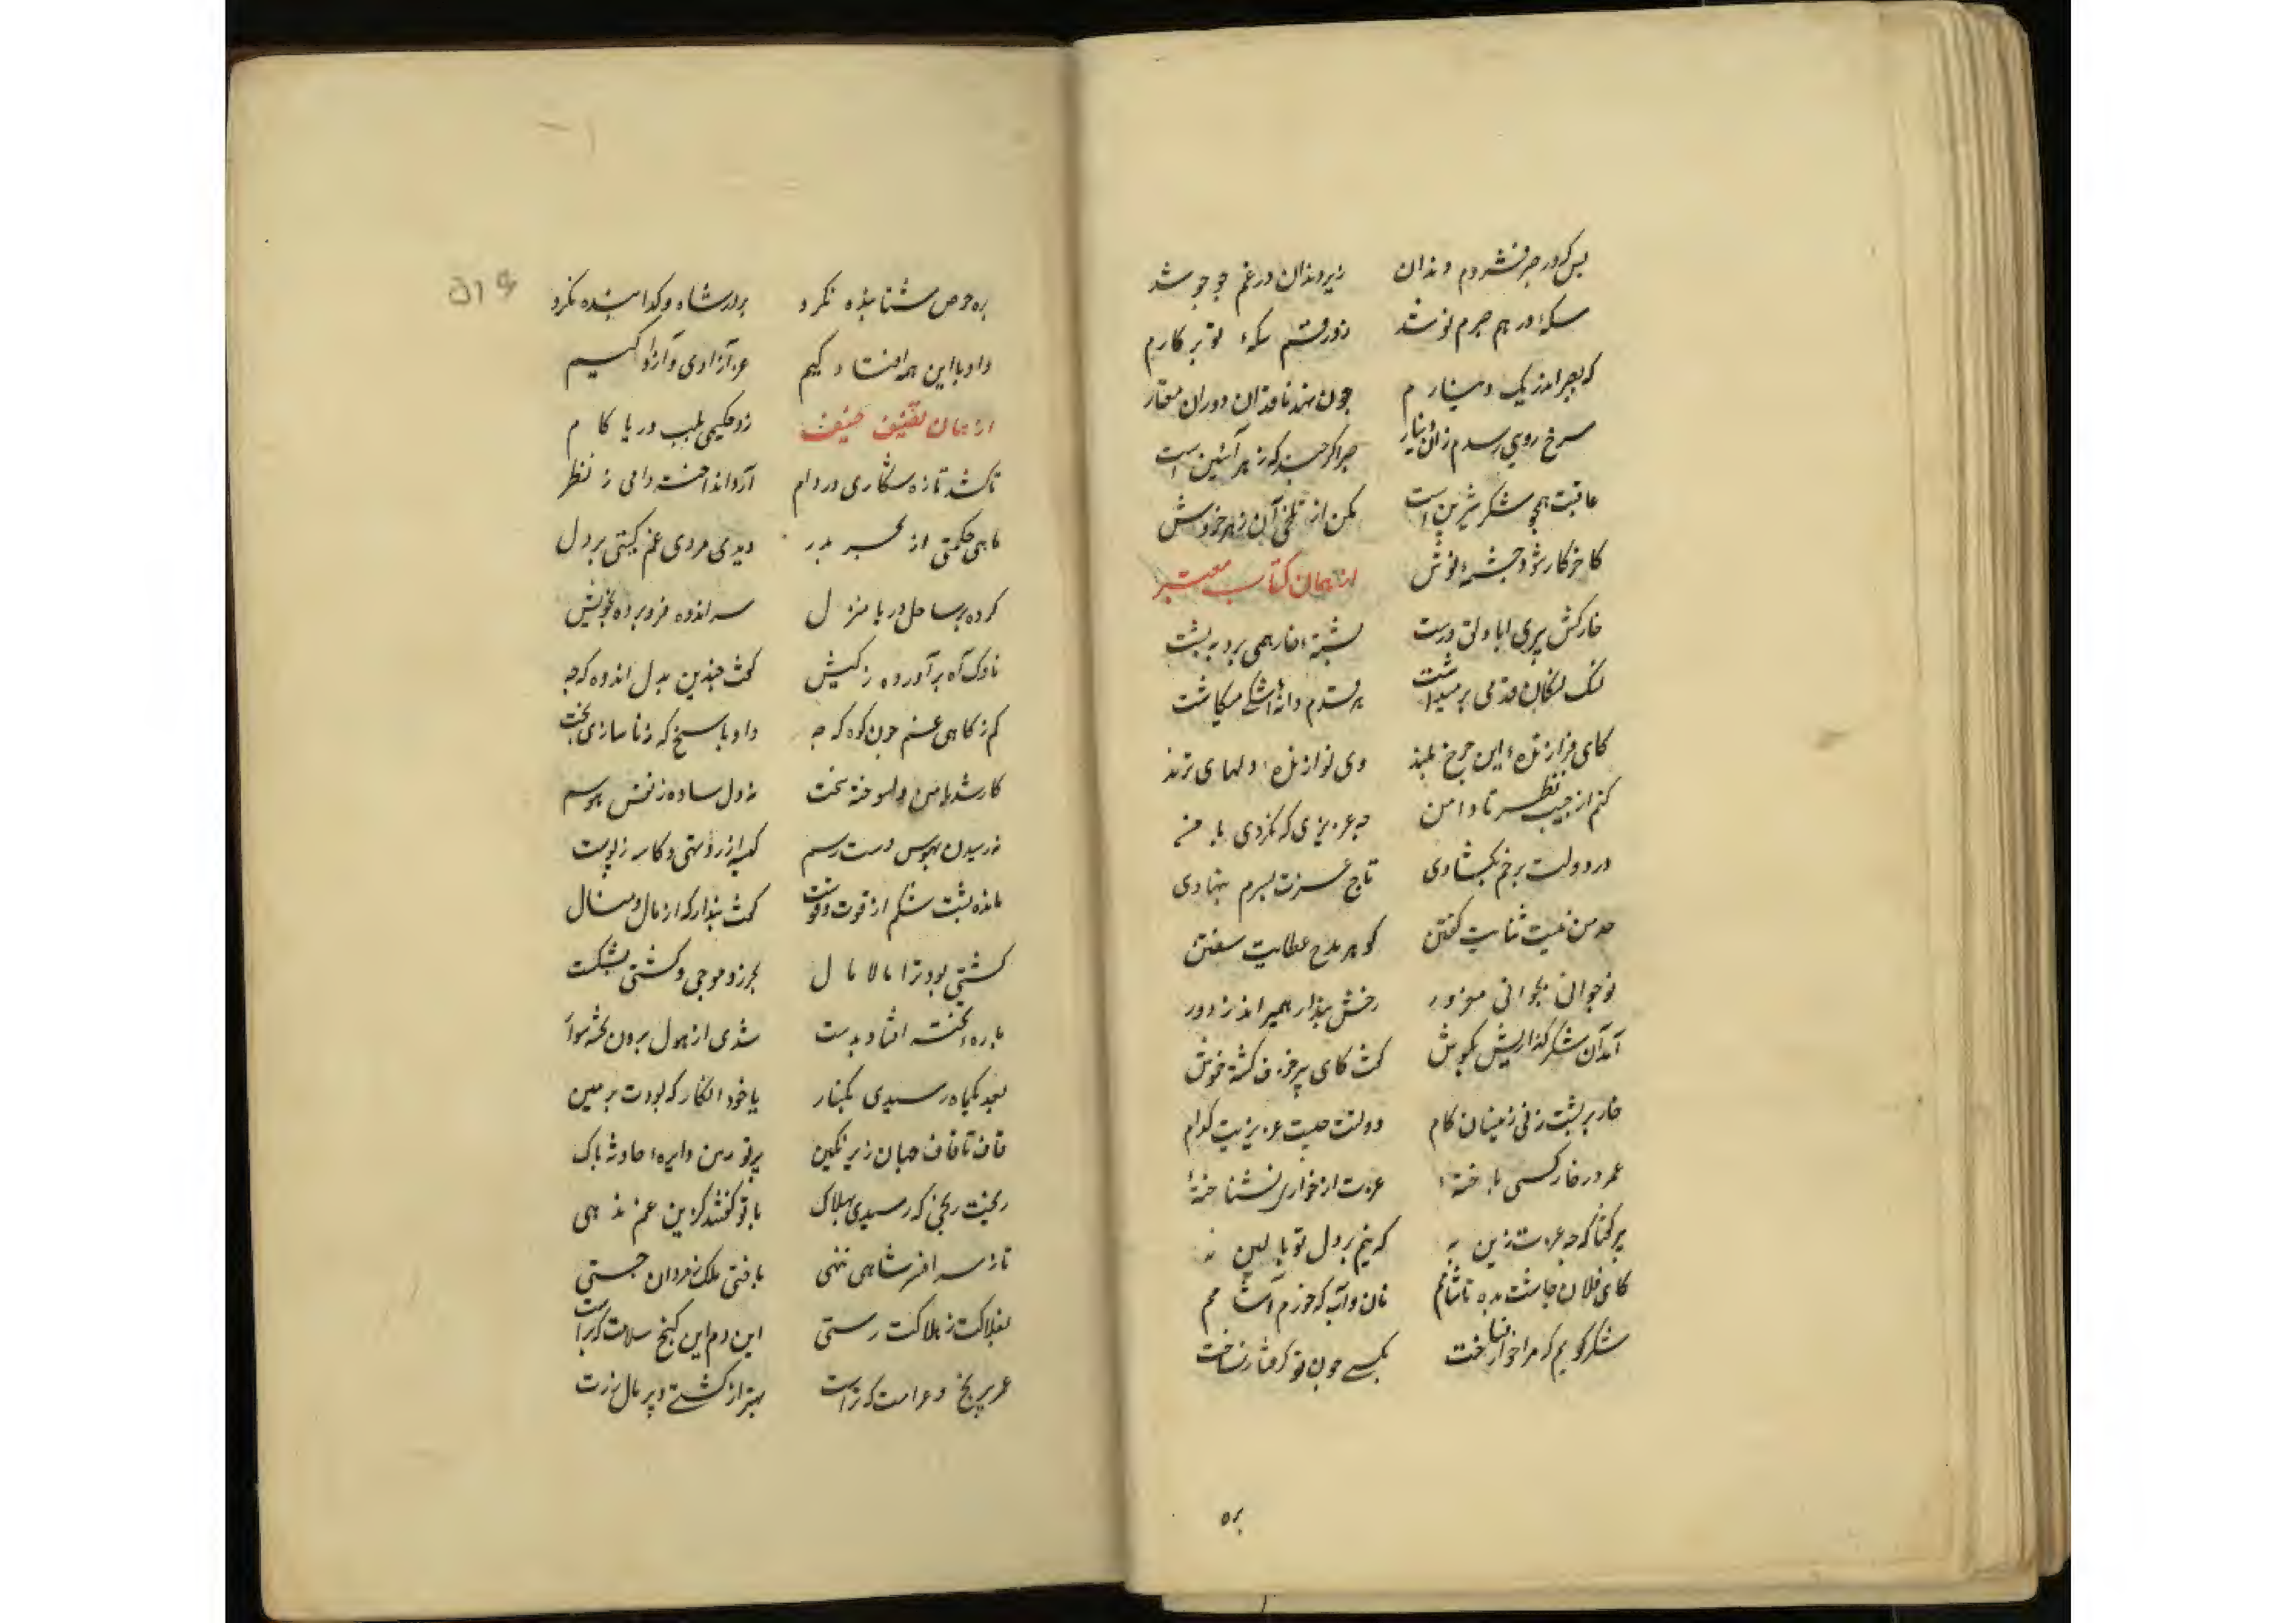 بس که در صبر فشردم دندان زیر دندان درغم جو جو شد
سکهٔ درهم صبرم نو شد زد رقم سکهٔ نو بر کارم
که بصبر اندر یک دینارم چون نهد ناقد آن دوران معیار
سرخ رویی رسدم زان دینار صبر اگر چند که زهر آئین است
عاقبت همچو شکر شیرین است مکن از تلخی آن زهر خروش
کاخر کار شود چشمهٔ نوش از همان کتاب معتبر
خارکش پیری با دلق درشت پشتهٔ خار همی برد به پشت
لنگ لنگان قدمی برمیداشت هر قدم دانه اشکی میکاشت
کای فرازندهٔ این چرخ بلند وی نوازندهٔ دلهای نژند
کنم از جیب نظر تا دامن چه عزیزی که نکردی با من
در دولت برخم بگشادی تاج عزت بسرم بنهادی
حد من نیست ثنایت گفتن گوهر مدح عطایت سفتن
نوجوان بجوانی مغرور رخش پندار همیراند ز دور
آمد آن شکرگذاریش بگوش گفت کای پیر خرف گشته خموش
خار بر پشت زنی زینسان گام دولتت چیست عزیزیت کدام
عمر در خارکشی باختهٔ عزت از خواری نشناختهٔ
پیر گفتا که چه عزت زین به که نیم بر در تو بالین نه
کای فلان چاشت بده تا شامم نان و آب که خورم آشامم
شکر گویم که مرا خوار نساخت بکسی چون تو گرفتار نساخت
بره
بره حرص شتابنده نکرد بردر شاه و گدا بنده نکرد
داد با این همه افتادگیم عز آزادی و آزادگیم
از همان تصنیف حنیف زد حکیمی بلب دریا گام
تا کشد تازه شکاری در دام آرد انداخت دامی ز نظر
ماهی حکمتی از بحر بدر دیدی مردی غم گیتی بر دل
کرده بر ساحل دریا منزل سر اندوه فرو برده بخویش
ناوک آه برآورده ز کیش گفت چندین بدل اندوه که چه
کم ز کاهی غم چون کوه که چه داد پاسخ که ز ناسازی بخت
کار شد با من دلسوخته سخت نه دل ساده ز نقش هوسم
نه رسیدن بهوس دسترسم کیسه از زر تهی و کاسه ز لوت
مانده پشت شکم از قوت و قوت گفت پندار که از مال و منال
کشتی بود ترا مالامال بحر زد موجی و کشتی بشکست
پارهٔ تخته افتاد بدست شدی از هول برون تخته سوار
بعد یکماه رسیدی بکنار یا خود انگار که بودت بر مین
قاف تا قاف جهان زیر نگین بر تو زین دایرهٔ حادثه باک
ریخت رنجی که رسیدی بهلاک با تو گفتند کزین غم نرهی
تا ز سر افسر شاهی ننهی باختی ملک ز مردان جستی
بفلاکت ز هلاکت رستی این دم این گنج سلامت که تراست
بهتر از کشتی پر مال و زرت